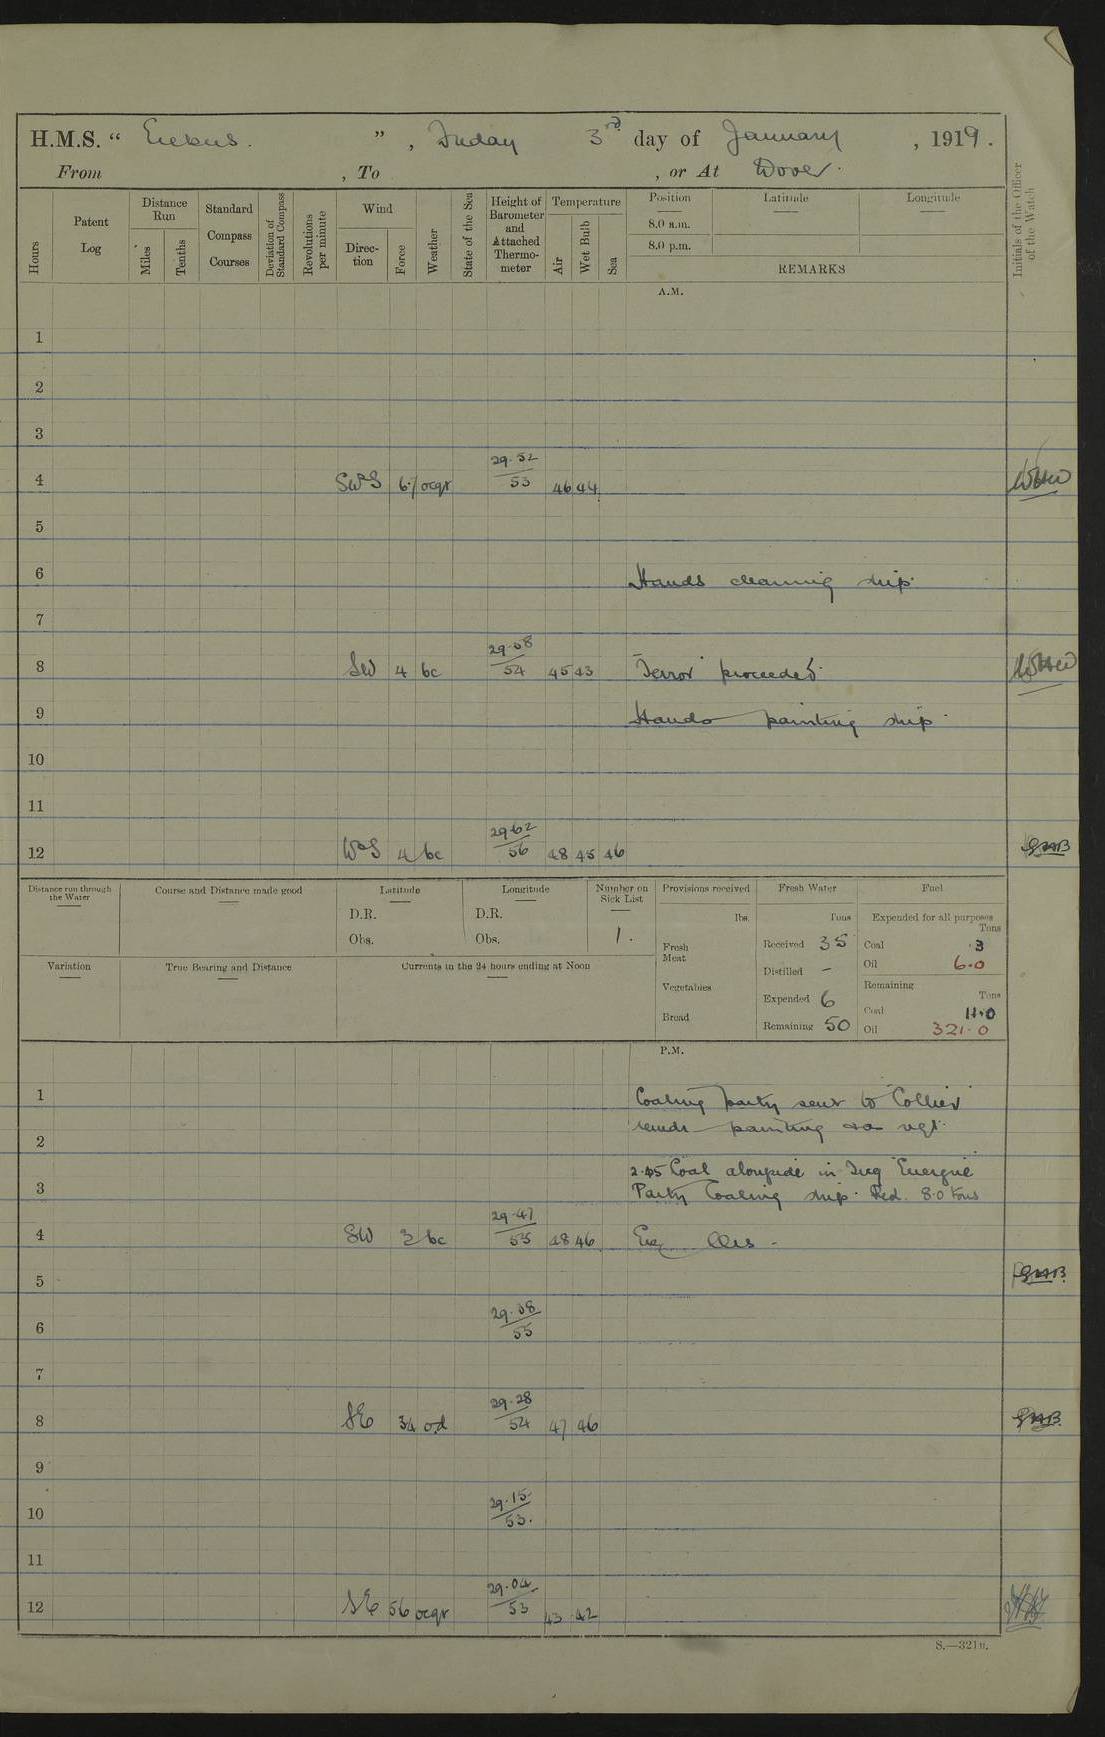 H.M.S. “ Erebus. ” , Friday 3rd day of January , 1919.
From , To , or At Dover.
Hours
Patent Log
Distance Run
Miles
Tenths
Standard Compass Courses
Deviation of Standard Compass
Revolutions per minute
Wind
Direc-tion
Force
Weather
State of the Sea
Height of Barometer and Attached Thermo-meter
Temperature
Air
Wet Bulb
Sea
Position
8.0 a.m.
8.0 p.m.
Latitude
Longitude
REMARKS
Initials of the Officer of the Watch
A.M.
1
2
3
29.52
4 SW°S 6.7 ocqr 53 46 44
5
6 Hands cleaning ship.
7
29.58
8 SW 4 bc 54 45 43 "Terror" proceeded.
9 Hands painting ship.
10
11
29.62
12 W°S 4 bc 56 48 45 46
Distance run through the Water
Course and Distance made good
Latitude
D.R.
Obs.
Longitude
D.R.
Obs.
Number on Sick List
1.
Variation
True Bearing and Distance
Currents in the 24 hours ending at Noon
Provisions received
lbs.
Fresh Meat
Vegetables
Bread
Fresh Water
Tons
Received 35
Distilled –
Expended 6
Remaining 50
Fuel
Expended for all purposes
Tons
Coal .3
Oil 6.0
Remaining
Tons
Coal 11.0
Oil 321.0
P.M.
1 Coaling party sent to "Collier"
painting
2
2.45 Coal alongside in Tug "Energie"
3 Party Coaling ship. Red. 8.0 tons
29.47
4 SW 3 bc 55 48 46
5
29.38
6 55
7
29.28
8 SE 34 od 54 47 46
9
29.15
10 53.
11
29.04
12 SE 56 ocqr 53 43 42
S.—321a.